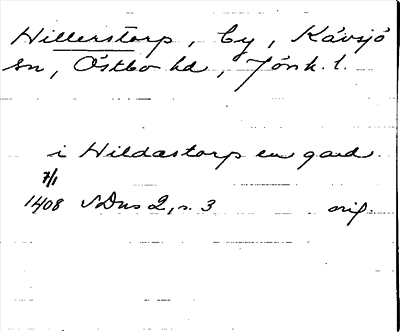 Hillerstorp, by, Kävsjö
sn, Östbo hd, Jönk. l.
i Hildastorp en gard.
7/1
1408 SDns 2, s. 3 orig.